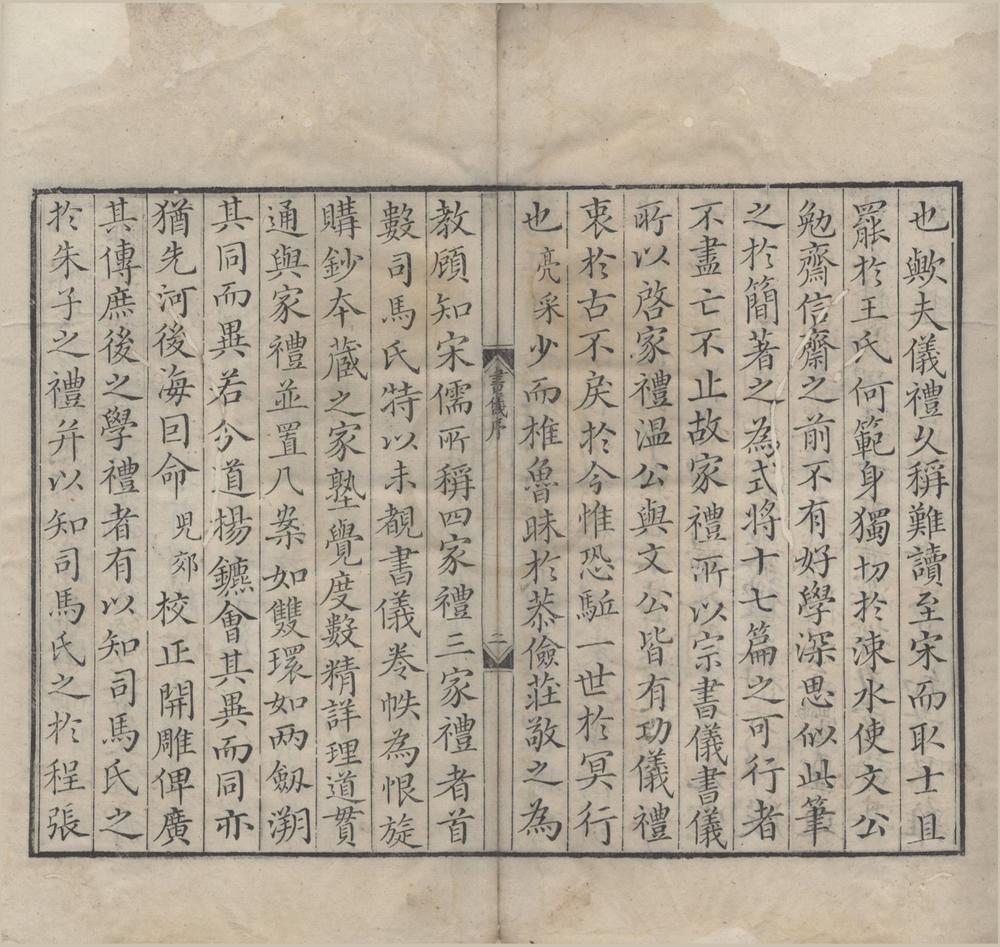 也歟夫儀禮久稱難讀至宋而取士且
罷於王氏何範身獨切於涑水使文公
勉齋信齋之前不有好學深思似此筆
之於簡著之為式將十七篇之可行者
不盡亡不止故家禮所以宗書儀書儀
所以啓家禮溫公與文公皆有功儀禮
衷於古不戾於今惟恐駈一世於冥行
也亮采少而椎魯昧於恭儉莊敬之為
書儀序
二
教顧知宋儒所稱四家禮三家禮者首
數司馬氏特以未覩書儀卷帙為恨旋
購鈔本藏之家塾覺度數精詳理道貫
通與家禮並置几案如雙環如兩劒溯
其同而異若分道揚鑣會其異而同亦
猶先河後海囙命兒郊校正開雕俾廣
其傳庶後之學禮者有以知司馬氏之
於朱子之禮并以知司馬氏之於程張